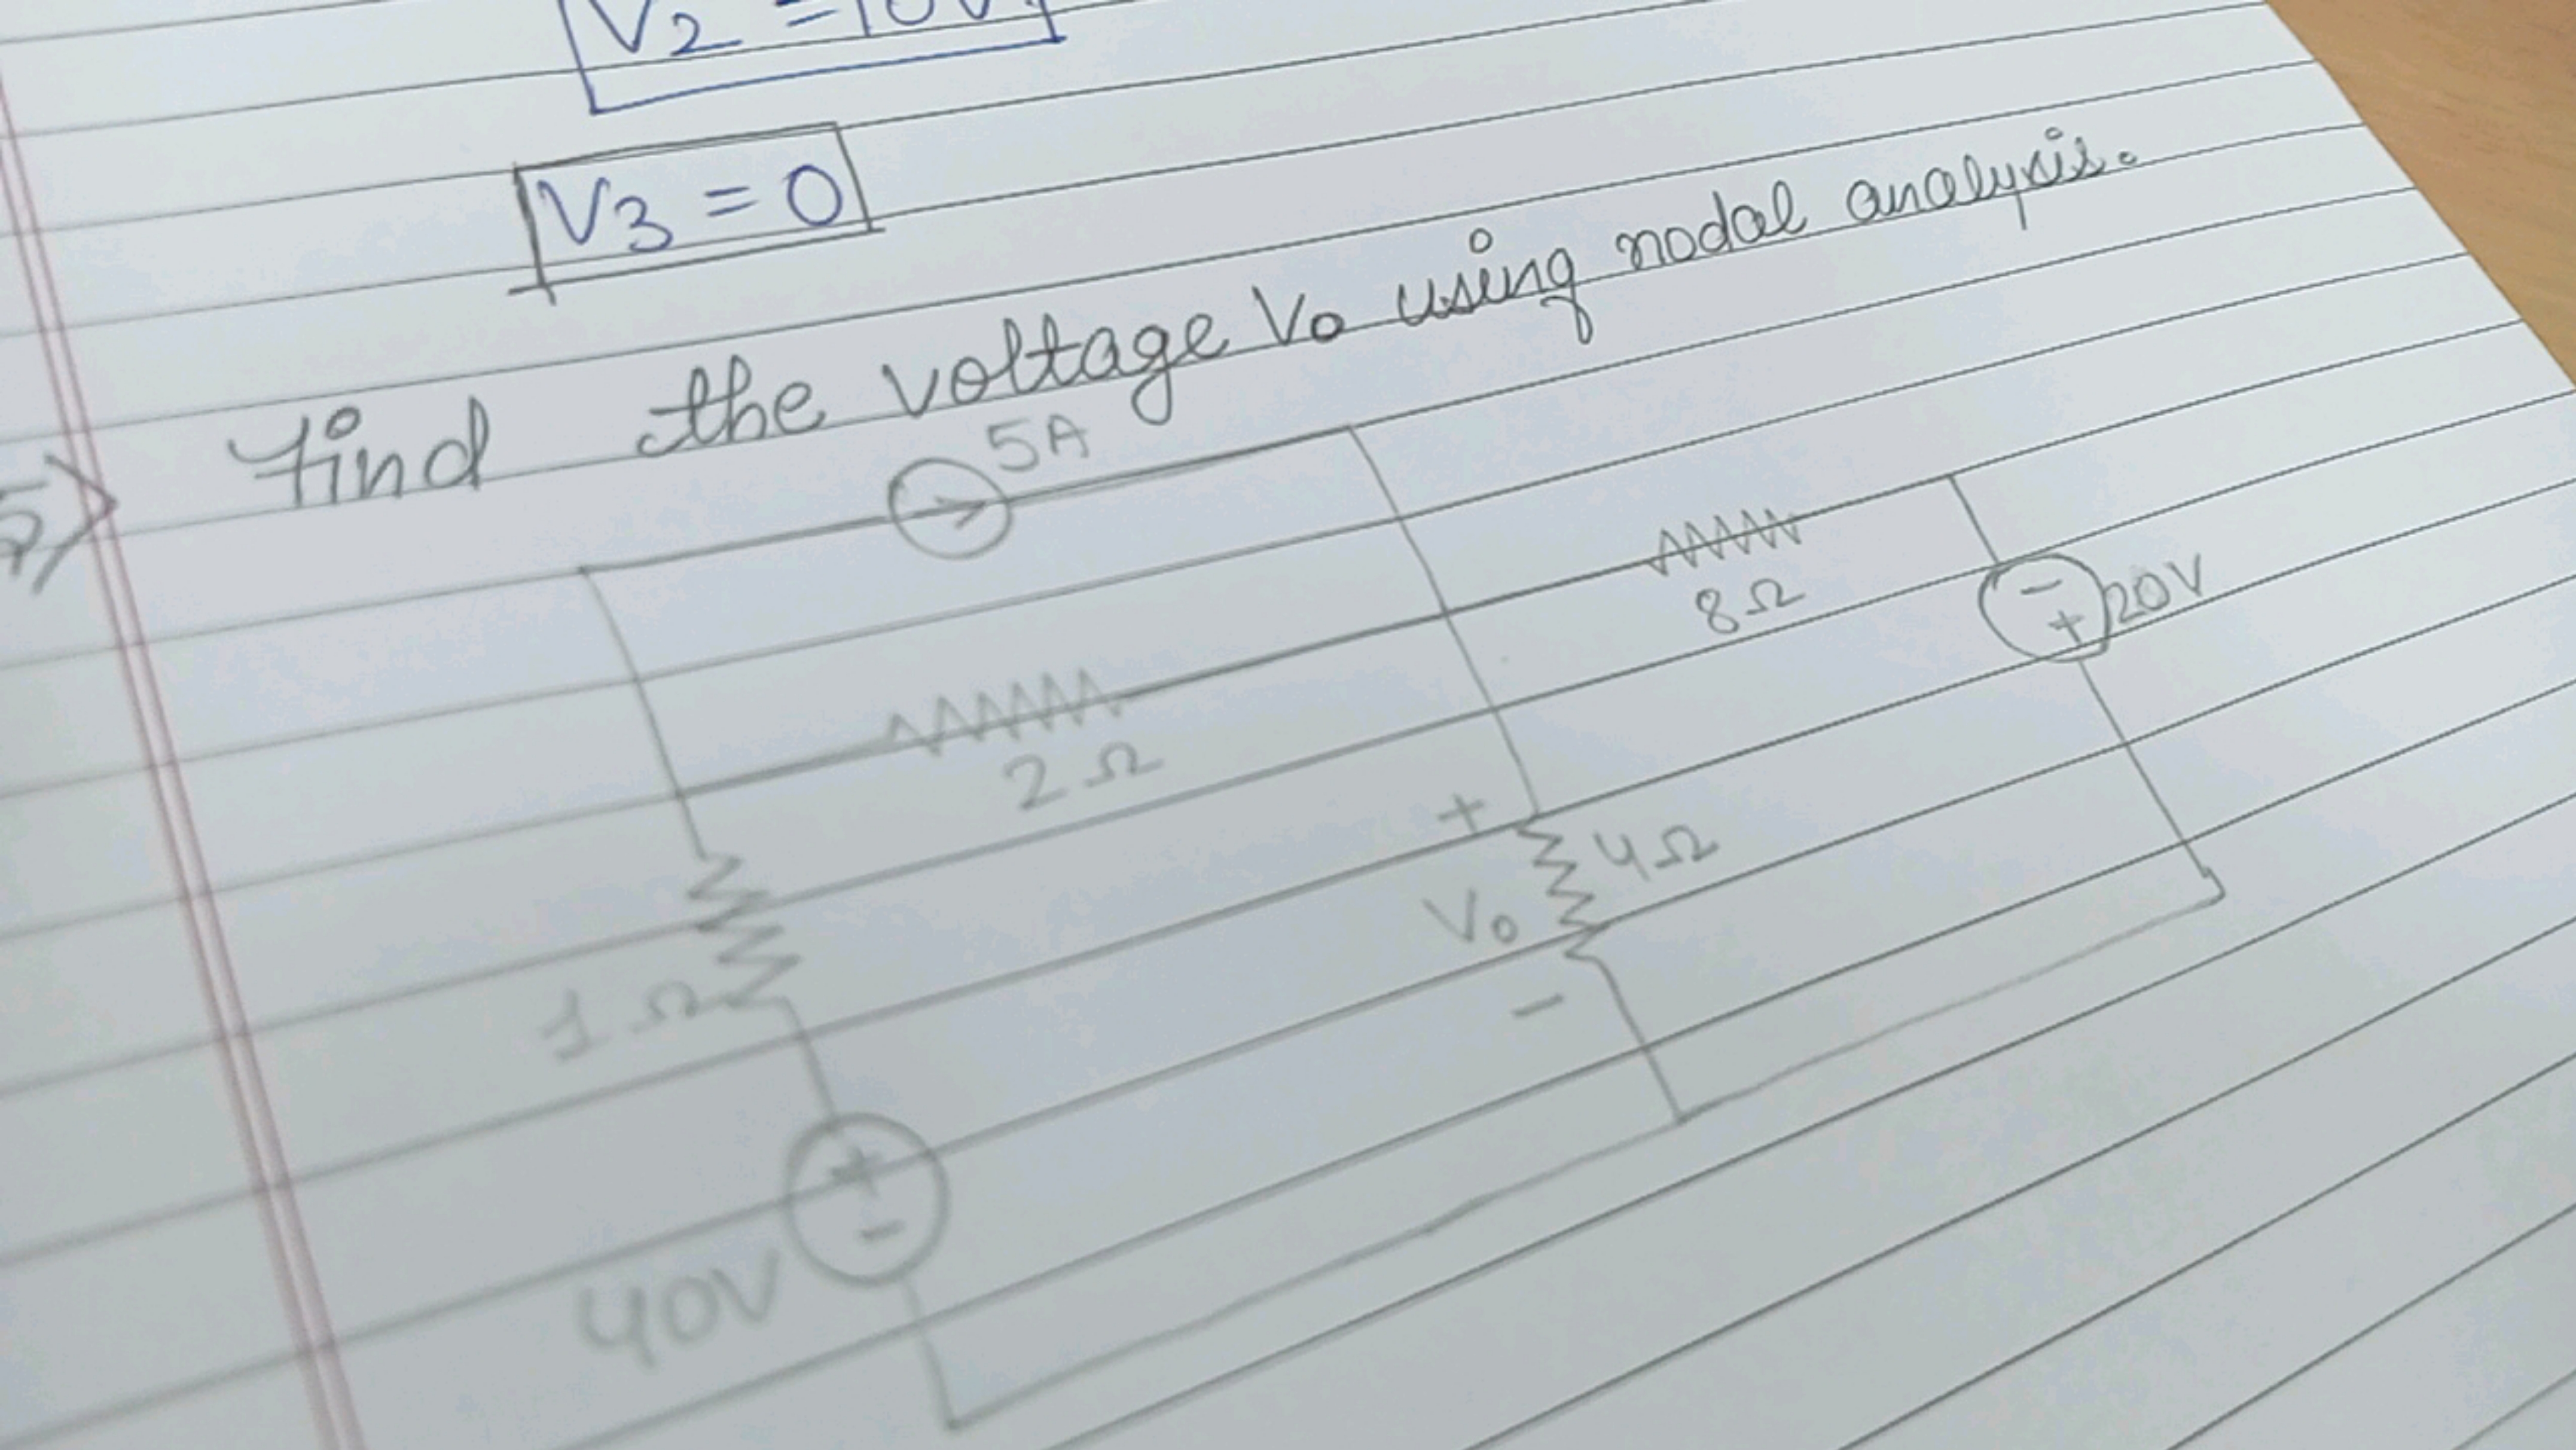 V2 = 10V
V3 = 0
5> Find the voltage Vo using nodal analysis.
5A
8Ω
- + 20V
2Ω
+
4Ω
Vo
-
1Ω
+ -
40V